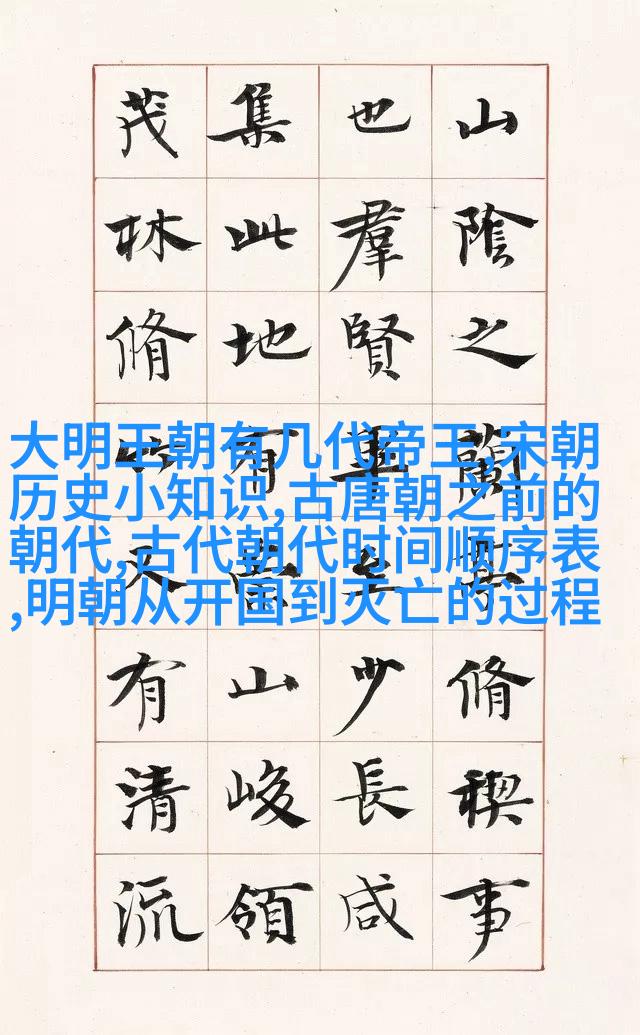 山陰之蘭脩稧事
也羣賢畢至少長咸
集此地有崇山峻領
茂林脩竹又有清流
大明王朝有几代帝王,宋朝
历史小知识,古唐朝之前的
朝代,古代朝代时间顺序表
,明朝从开国到灭亡的过程